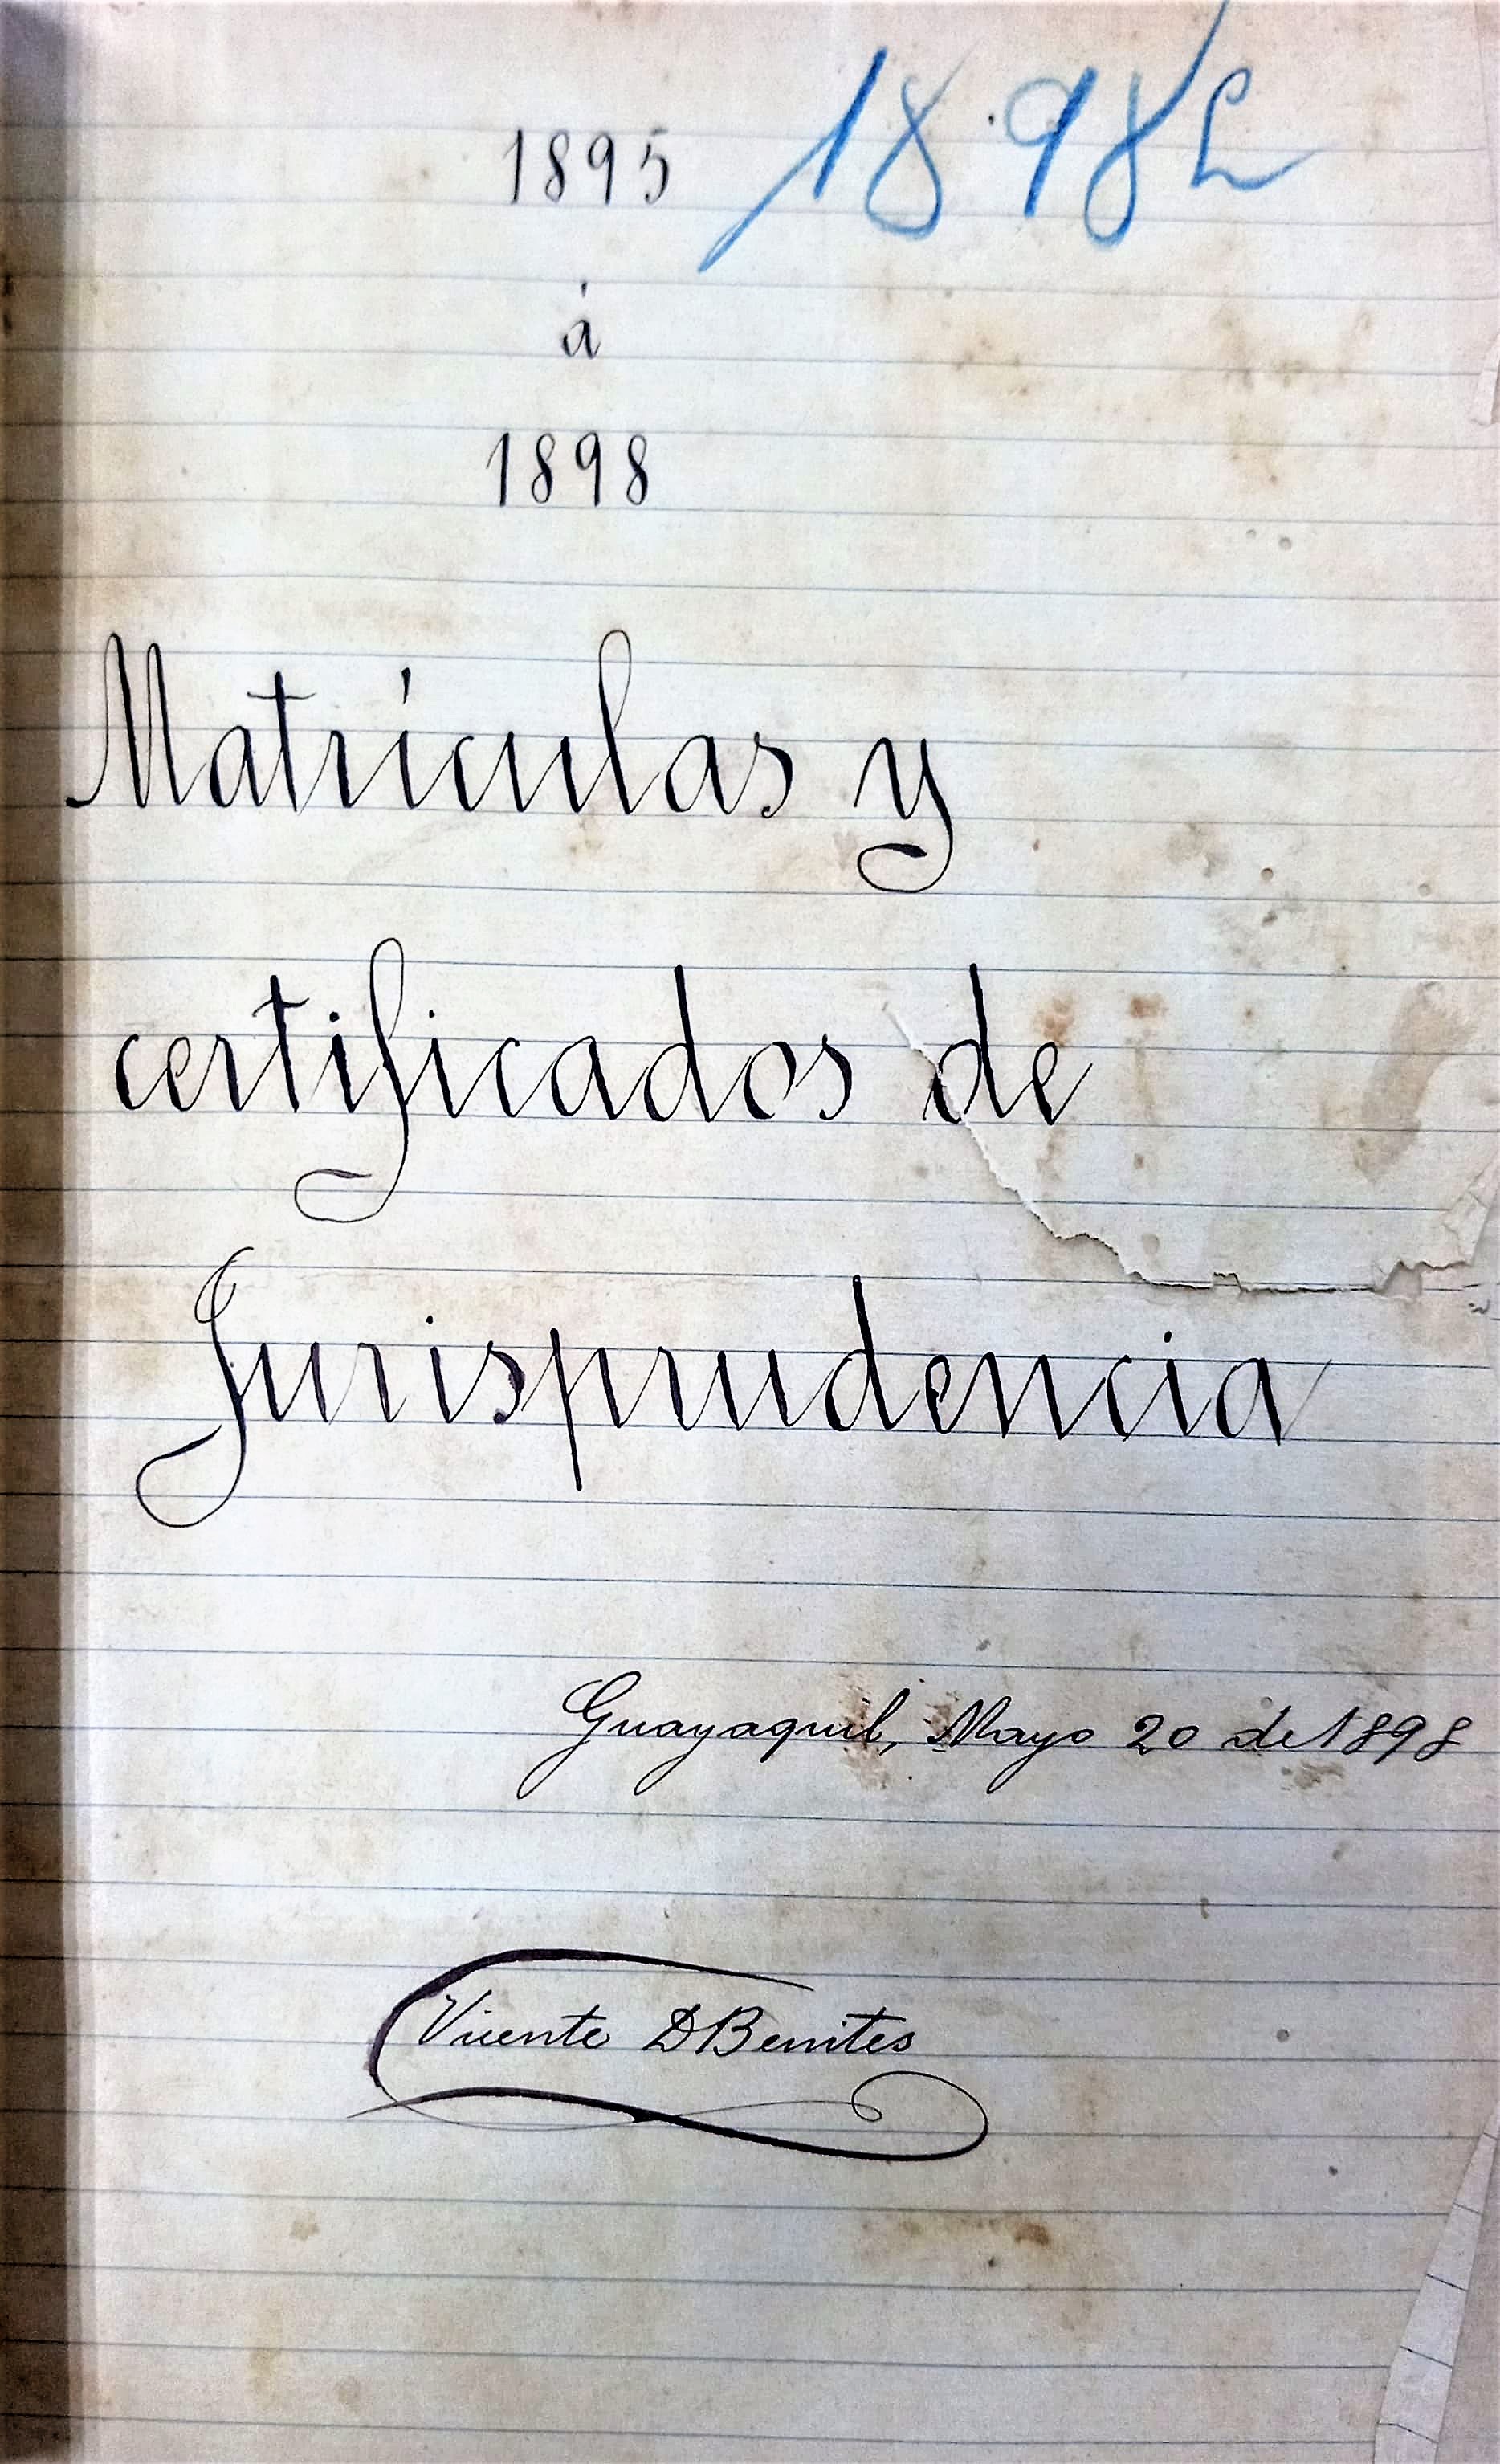 1895 1898
á
1898
Matrículas y
certificados de
Jurisprudencia
Guayaquil, Mayo 20 de 1898
Vicente D Benites